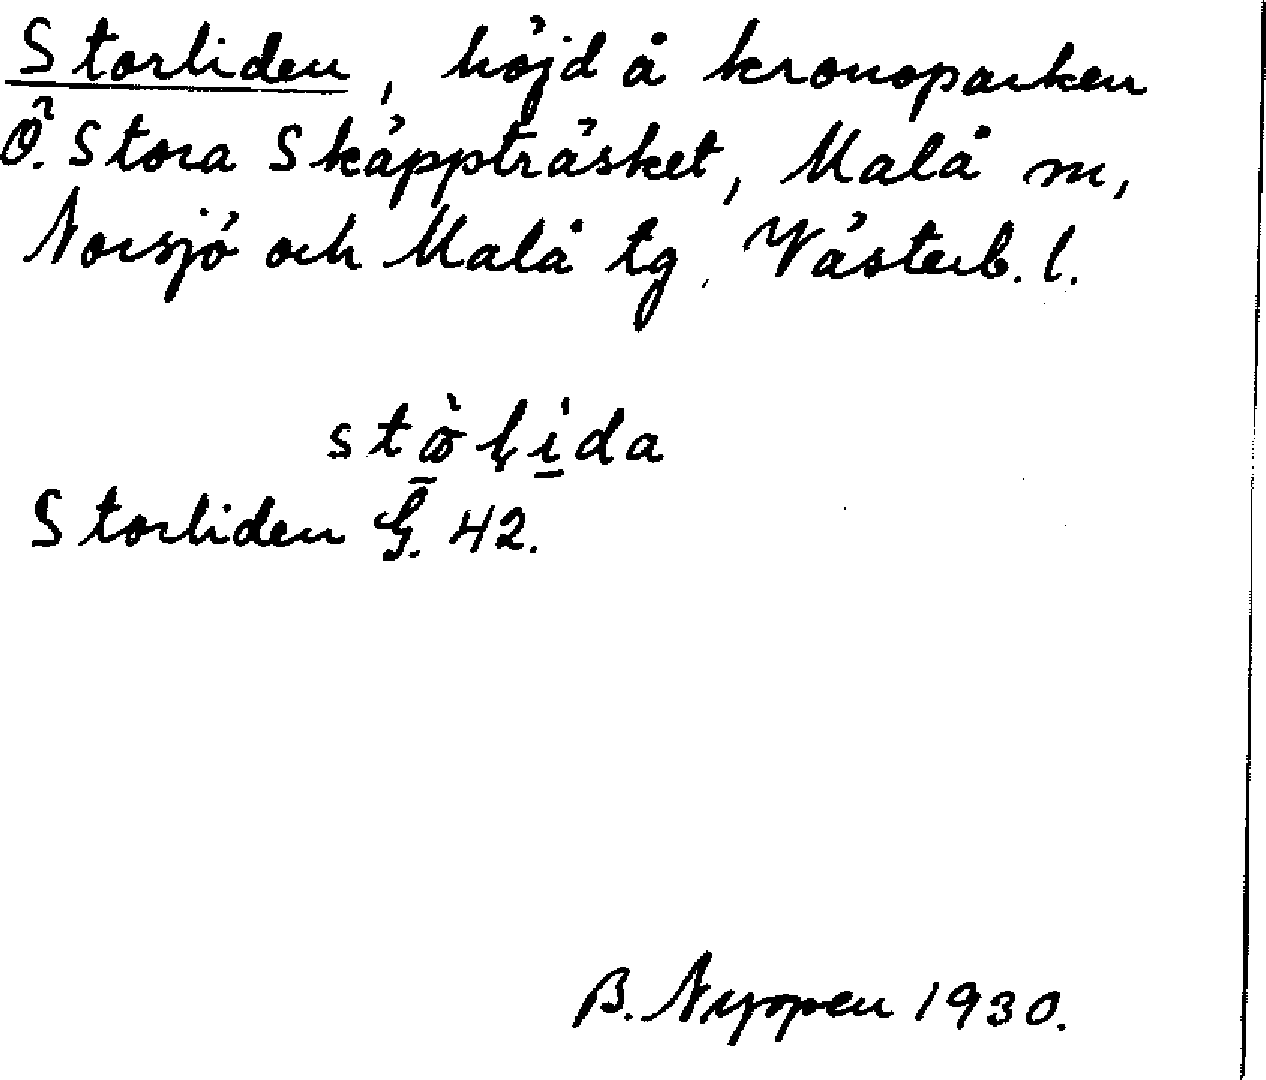 Storliden, höjd å kronoparken
Ö. Stora Skäppträsket, Malå sn,
Norsjö och Malå tg. Västerb. l.
Storliden G. 42.
B. Nyopen 1930.